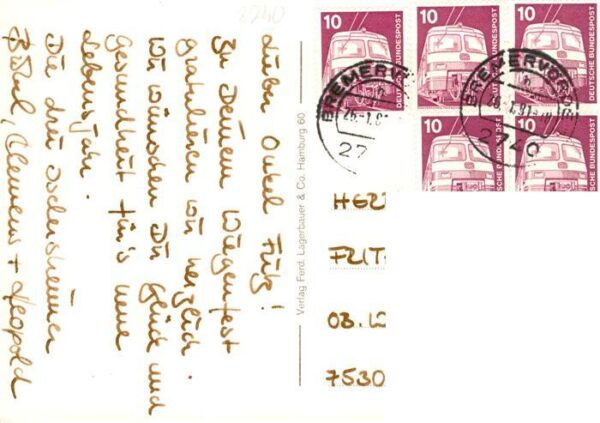 2740
Lieber Onkel Fritz!
Zu Deinem Wiegenfest
gratulieren wir herzlich.
Wir wünschen Dir Glück und
Gesundheit für's neue
Lebensjahr.
Die drei
Bärbel, Clemens + Leopold
Verlag Ferd. Lagerbauer & Co. Hamburg 60
10 DEUTSCHE BUNDESPOST
10 DEUTSCHE BUNDESPOST
10 DEUTSCHE BUNDESPOST
10 DEUTSCHE BUNDESPOST
10 DEUTSCHE BUNDESPOST
BREMERV
27
BREMERVÖRDE
2740
FRIT
03.12
7530